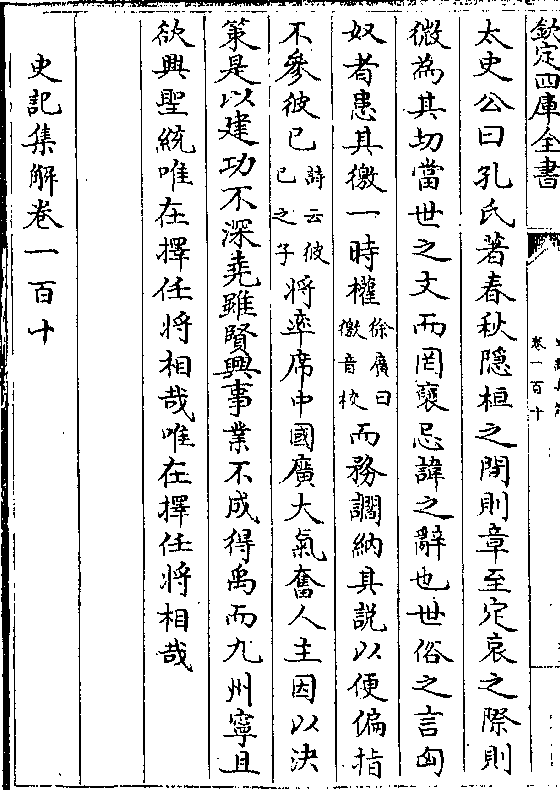 欽定四庫全書
卷一百十
太史公曰孔氏著春秋隠桓之間則章至定哀之際則
微為其切當世之文而罔襃忌諱之辭也世俗之言匈
奴者患其徼一時權徐廣曰徼音校而務讇納其説以便偏指
不參彼已詩云彼已之子將率席中國廣大氣奮人主因以決
策是以建功不深堯雖賢興事業不成得禹而九州寧且
欲興聖統唯在擇任將相哉唯在擇任將相哉
史記集解卷一百十